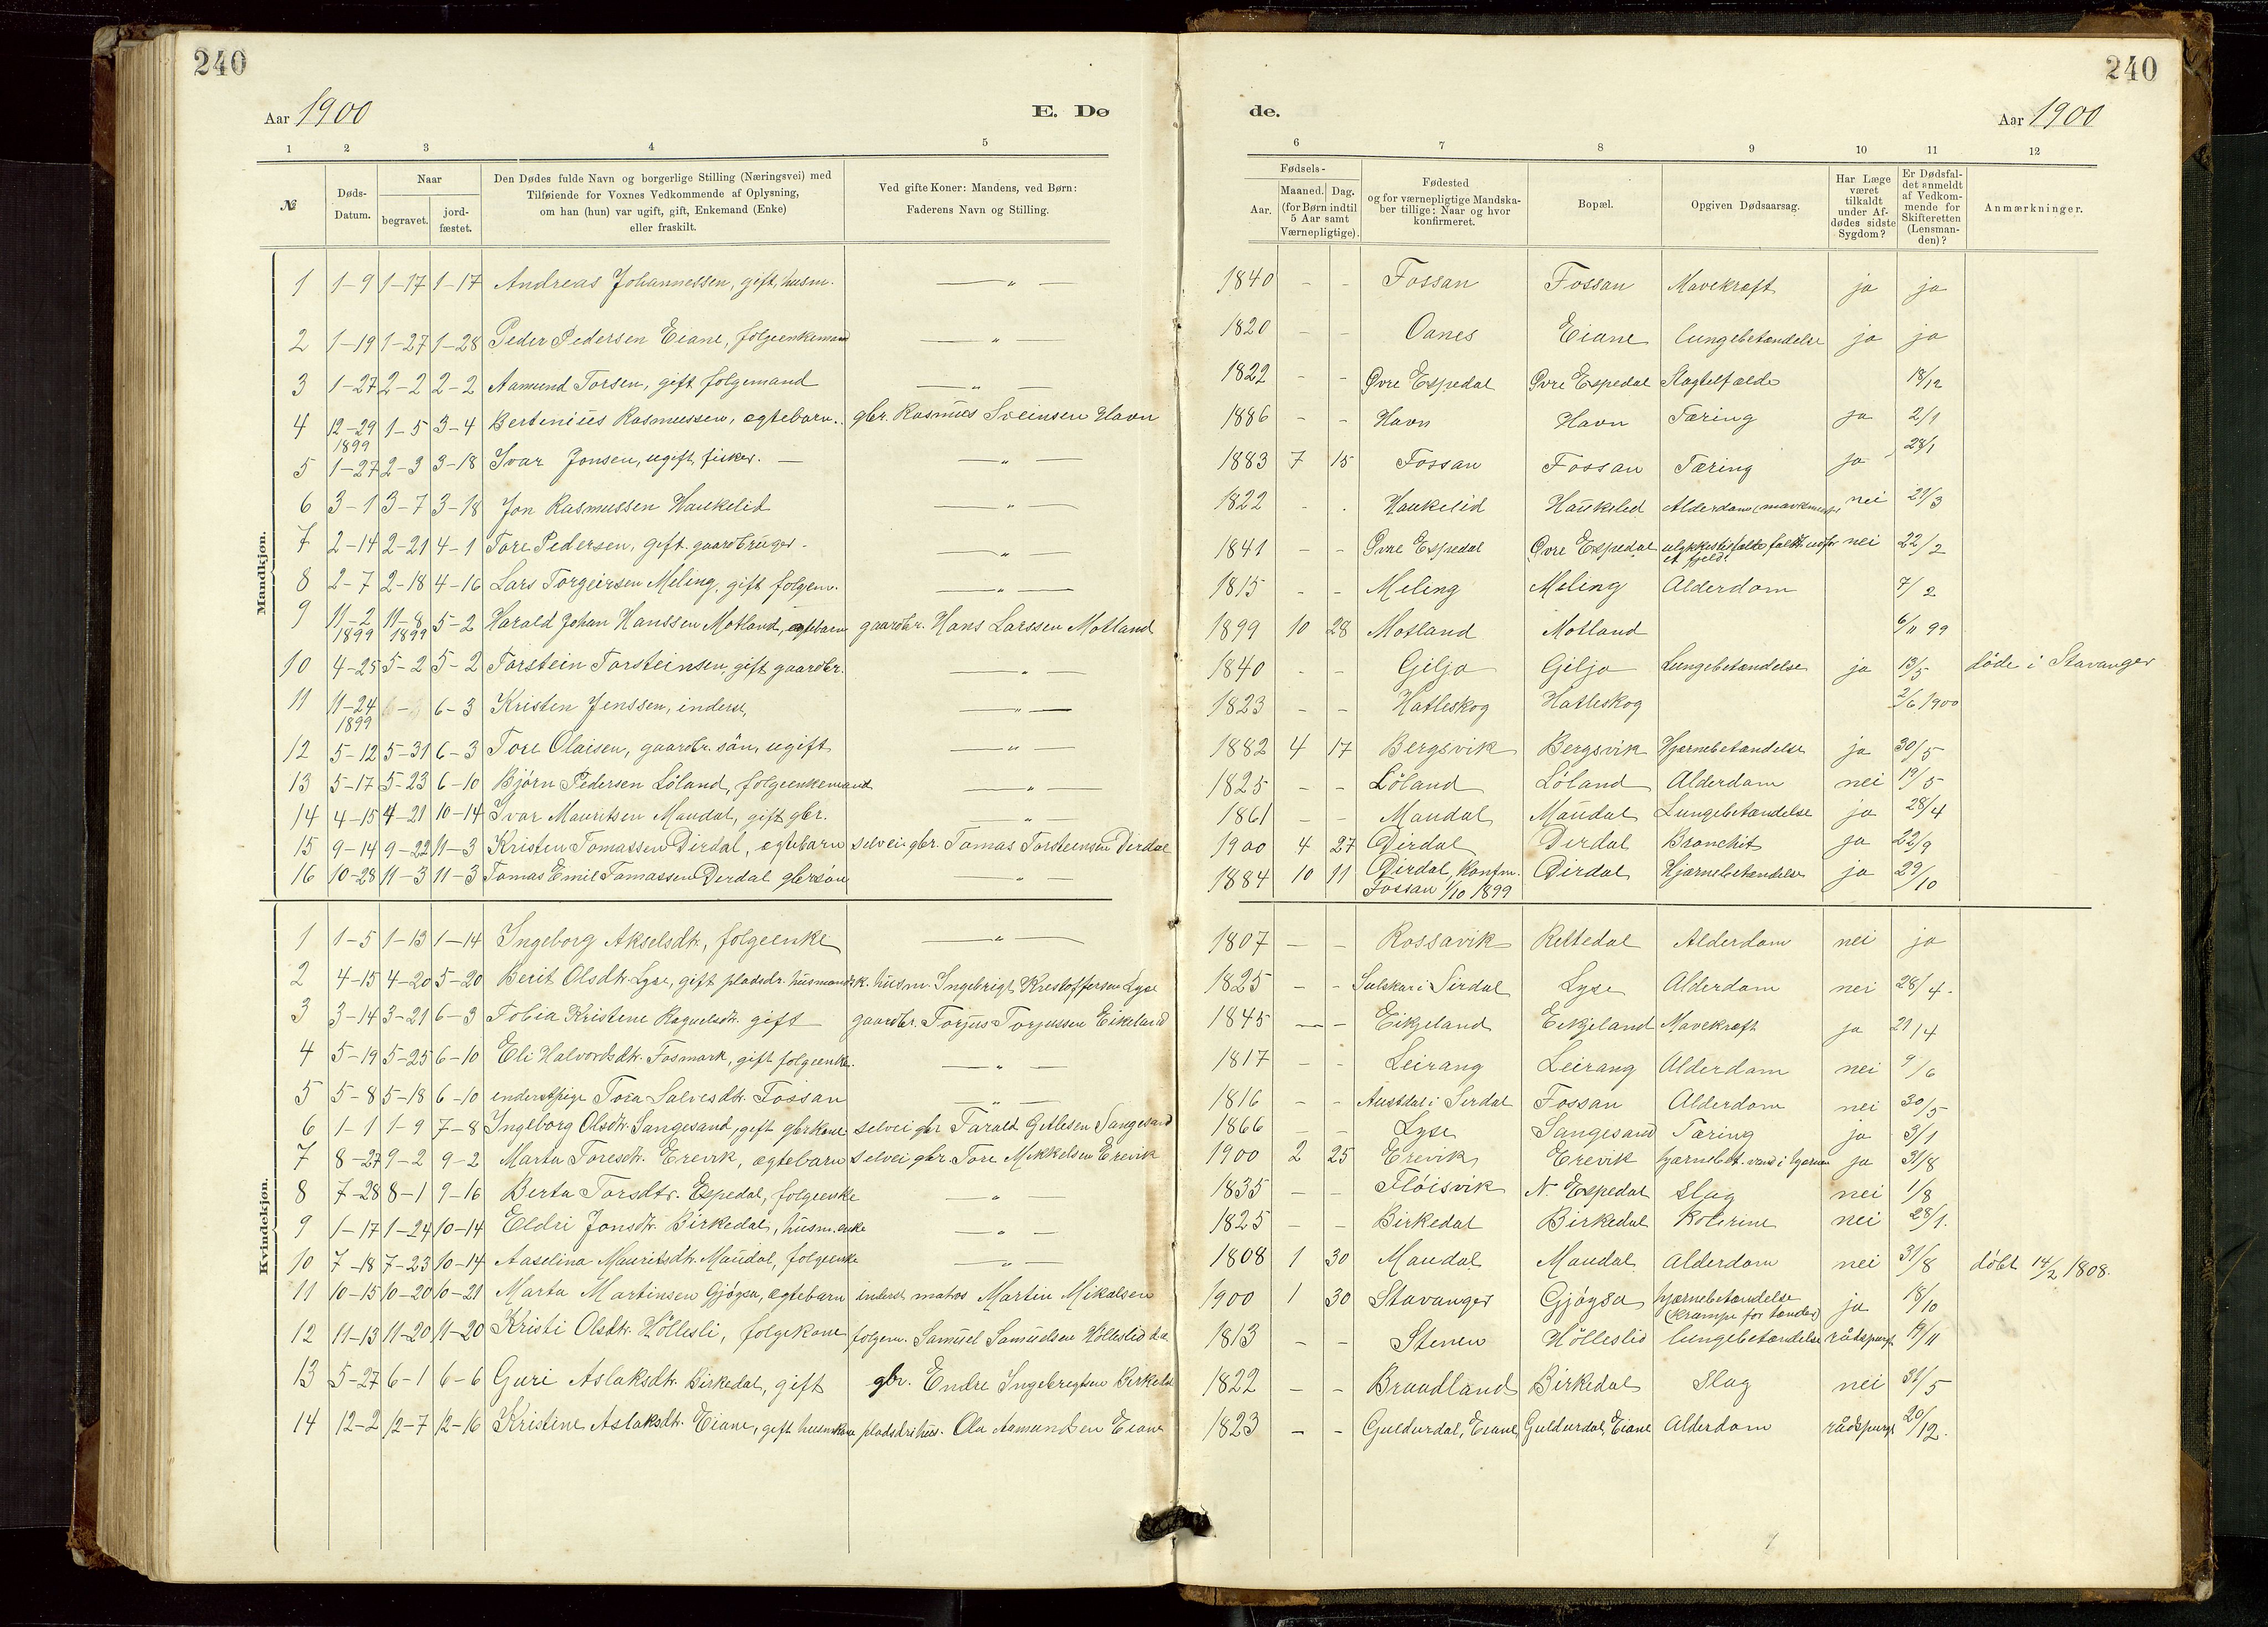 240
240
Aar 1900
E. Dø
de.
Aar 1900
1 2 3 4 5
6 7 8 9 10 11 12
№
Døds-Datum.
Naar
begravet.
jord-fæstet.
Den Dødes fulde Navn og borgerlige Stilling (Næringsvei) med
Tilføiende for Voxnes Vedkommende af Oplysning,
om han (hun) var ugift, gift, Enkemand (Enke)
eller fraskilt.
Ved gifte Koner: Mandens, ved Børn:
Faderens Navn og Stilling.
Fødsels-
Aar.
Maaned. Dag.
(for Børn indtil
5 Aar samt
Værnepligtige).
Fødested
og for værnepligtige Mandska-
ber tillige: Naar og hvor
konfirmeret.
Bopæl.
Opgiven Dødsaarsag.
Har Læge
været
tilkaldt
under Af-
dødes sidste
Sygdom?
Er Dødsfal-
det anmeldt
af Vedkom-
mende for
Skifteretten
(Lensman-
den)?
Anmærkninger.
Mandkjøn.
1 1-9 1-17 1-17 Andreas Johannessen, gift, husm. —„— 1840 - - Fossan Fossan Mavekræft ja ja
2 1-19 1-27 1-28 Peder Pedersen Eiane, folgeenkemand —„— 1820 - - Oanes Eiane lungebetændelse ja ja
3 1-27 2-2 2-2 Aamund Torsen, gift folgemand —„— 1822 - - Øvre Espedal Øvre Espedal Slagtilfælde 18/12
4 12-29 1899 1-5 3-4 Bertinius Rasmussen, ægtebarn. gbr. Rasmus Sveinsen Havn 1886 - - Havn Havn Tæring ja 2/1
5 1-27 2-3 3-18 Ivar Jonsen, ugift, fisker. —„— 1883 7 15 Fossan Fossan Tæring ja 28/1
6 3-1 3-7 3-18 Jon Rasmussen Haukelid —„— 1822 - - Haukelid Haukelid Alderdom nei 21/3
7 2-14 2-21 4-1 Tore Pedersen, gift gaardbruger. —„— 1841 - - Øvre Espedal Øvre Espedal ulykkestilfælde faldt udfor et fjeld. nei 22/2
8 2-7 2-18 4-16 Lars Torgeirsen Meling, gift folgem. —„— 1815 - - Meling Meling Alderdom 7/2
9 11-2 1899 11-8 1899 5-2 Harald Johan Hanssen Motland, ægtebarn gaardbr. Hans Larssen Motland 1899 10 28 Motland Motland 6/11 99
10 4-25 5-2 5-2 Torstein Torsteinsen, gift gaardbr. —„— 1840 - - Gilja Gilja Lungebetændelse ja 13/5 døde i Stavanger
11 11-24 1899 6-3 6-3 Kristen Jenssen, inderst, —„— 1823 - - Hatleskog Hatleskog 2/6 1900
12 5-12 5-31 6-3 Tore Olaisen, gaardbr. søn, ugift —„— 1882 4 17 Bergsvik Bergsvik Hjernebetændelse ja 30/5
13 5-17 5-23 6-10 Bjørn Pedersen Løland, folgeenkemand —„— 1825 - - Løland Løland Alderdom nei 19/5
14 4-15 4-21 10-14 Ivar Mauritsen Maudal, gift gbr. —„— 1861 - - Maudal Maudal Lungebetændelse ja 28/4
15 9-14 9-22 11-3 Kristen Tomassen Dirdal, ægtebarn selvei gbr. Tomas Torsteensen Dirdal 1900 4 27 Dirdal Dirdal Bronchit ja 22/9
16 10-28 11-3 11-3 Tomas Emil Tomassen Dirdal gbr søn —„— 1884 10 11 Dirdal, konfm. Fossan 1/10 1899 Dirdal Hjernebetændelse ja 29/10
Kvindekjøn.
1 1-5 1-13 1-14 Ingeborg Akselsdtr, folgeenke —„— 1807 - - Rossavik Rettedal Alderdom nei ja
2 4-15 4-20 5-20 Berit Olsdtr. Lyse, gift pladsdr. husmandsk. husm. Ingebrigt Kristoffersen Lyse 1825 - - Suleskar i Sirdal Lyse Alderdom nei 28/4.
3 3-14 3-21 6-3 Tobia Kristine Raguelsdtr. gift gaardbr. Torjus Torjussen Eikeland 1845 - - Eikjeland Eikjeland Mavekræft ja 21/4
4 5-19 5-25 6-10 Eli Halvordsdtr. Fosmark, gift folgeenke. —„— 1817 - - Leirang Leirang Alderdom nei 9/6
5 5-8 5-18 6-10 enderstpige Tora Salvesdtr. Fossan —„— 1816 - - Austdal i Sirdal Fossan Alderdom nei 30/5
6 1-1 1-9 7-8 Ingeborg Olsdtr. Sangesand, gift gbrkone selvei gbr Tarald Getlesen Sangesand 1866 - - Lyse Sangesand Tæring ja 3/1
7 8-27 9-2 9-2 Marta Toresdtr. Erevik, ægtebarn selvei gbr. Tore Mikkelsen Erevik 1900 2 25 Erevik Erevik hjernebet. vand i hjernen ja 31/8
8 7-28 8-1 9-16 Berta Torsdtr. Espedal, folgeenke —„— 1835 - - Fløisvik N. Espedal Slag nei 1/8
9 1-17 1-24 10-14 Eldri Jonsdtr. Birkedal, husm.enke —„— 1825 - - Birkedal Birkedal Kolerine nei 28/1.
10 7-18 7-23 10-14 Aaselina Mauritsdtr. Maudal, folgeenke —„— 1808 1 30 Maudal Maudal Alderdom nei 31/8 døbt 14/2 1808.
11 10-15 10-20 10-21 Marta Martinsen Gjøysa, ægtebarn inderst matros Martin Mikalsen 1900 1 30 Stavanger Gjøysa hjernebetændelse (krampe for tænder) ja 18/10
12 11-13 11-20 11-20 Kristi Olsdtr. Høllesli, folgekone folgem. Samuel Samuelsen Hølleslid 1813 - - Stenen Hølleslid lungebetændelse rådspurgt 19/11
13 5-27 6-1 6-6 Guri Aslaksdtr. Birkedal, gift gbr. Endre Ingebregtsen Birkedal 1822 - - Braadland Birkedal Slag nei 31/5
14 12-2 12-7 12-16 Kristine Aslaksdtr. Eiane, gift husmkone pladsdr. hus. Ola Aamundsen Eiane 1823 - - Guldurdal, Eiane Guldurdal, Eiane Alderdom rådspurgt 20/12.